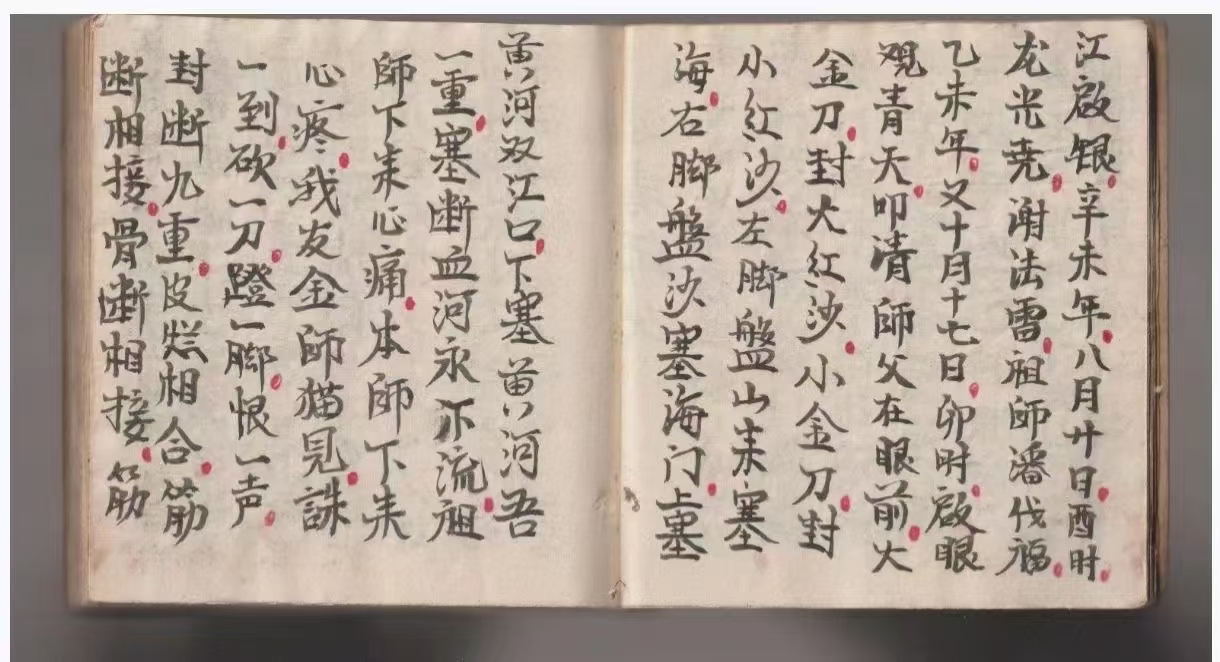 江啟银辛未年八月廿日酉时
龙光尭谢法雷祖师潘伐福
乙未年又十月十七日卯时啟眼
观青天叩清師父在眼前大
金刀封大红沙小金刀封
小红沙左脚盤山来塞
海右脚盤沙塞海门上塞
黄河双江口下塞黄河吾
一重塞断血河永不流祖
師下来心痛本師下来
心疼我友金師猫見誅
一到砍一刀蹬一脚恨一声
封断九重皮烂相合筋
断相接骨断相接筋